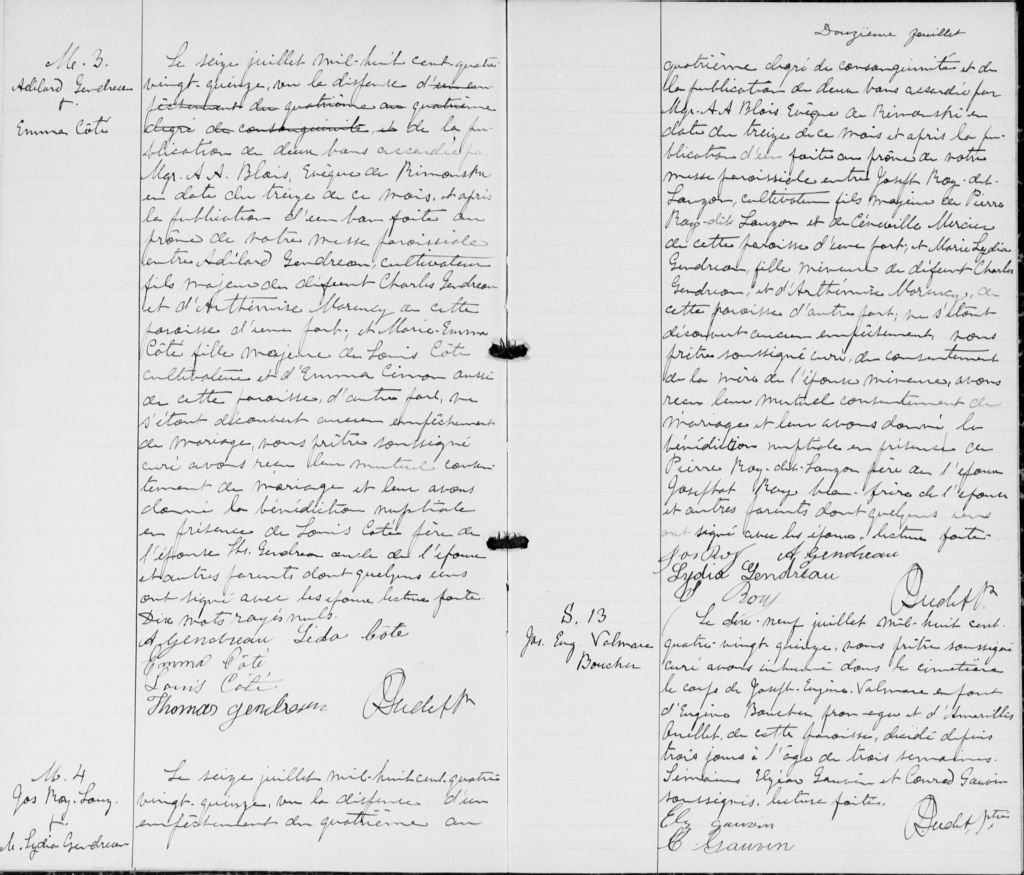 M. 3.
Adélard Gendreau
+
Emma Côté
Le seize juillet mil-huit cent-quatre
vingt-quinze, vu la dispense d'un em
pêchement du quatrième au quatrième
degré de consanguinité, et de la pu-
blication de deux bans accordée par
Mgr. A. A. Blais, Evêque de Rimouski
en date du treize de ce mois, et après
la publication d'un ban faite au
prône de notre messe paroissiale
entre Adélard Gendreau, cultivateur
fils majeur de défunt Charles Gendreau
et d'Arthémise Morency de cette
paroisse d'une part; et Marie-Emma
Côté fille majeure de Louis Côté
cultivateur et d'Emma Cimon aussi
de cette paroisse, d'autre part, ne
s'étant découvert aucun empêchement
de mariage, nous prêtre soussigné
curé avons reçu leur mutuel consen-
tement de mariage et leur avons
donné la bénédiction nuptiale
en présence de Louis Côté père de
l'épouse Ths. Gendreau oncle de l'époux
et autres parents dont quelques uns
ont signé avec les époux, lecture faite.
Dix mots rayés nuls.
A Gendreau Léda Côté
Emma Côté
Louis Côté
Thomas Gendreau Audet Ptr
M. 4
Jos Roy-Lauz.
+
M. Lydia Gendreau
Le seize juillet mil-huit cent-quatre
vingt-quinze, vu la dispense d'un
empêchement du quatrième au
Douzième feuillet
quatrième degré de consanguinité et de
la publication de deux bans accordée par
Mgr. A A Blais Evêque de Rimouski en
date du treize de ce mois et après la pu-
blication d'un faite au prône de notre
messe paroissiale entre Joseph Roy-dit-
Lauzon, cultivateur fils majeur de Pierre
Roy-dit-Lauzon et de Mercier
de cette paroisse d'une part; et Marie Lydia
Gendreau, fille mineure de défunt Charles
Gendreau, et d'Arthémise Morency, de
cette paroisse d'autre part, ne s'étant
découvert aucun empêchement, nous
prêtre soussigné curé, du consentement
de la mère de l'épouse mineure, avons
reçu leur mutuel consentement de
mariage et leur avons donné la
bénédiction nuptiale en présence de
Pierre Roy-dit-Lauzon père de l'époux
Josephat Roy beau-frère de l'époux
et autres parents dont quelques uns
ont signé avec les époux, lecture faite.
Jos Roy A Gendreau
Lydia Gendreau
Roy Audet Ptr
S. 13
Jos. Eug. Valmare
Boucher
Le dix-neuf juillet mil-huit cent-
quatre-vingt-quinze, nous prêtre soussigné
curé avons inhumé dans le cimetière
le corps de Joseph-Eugène-Valmare enfant
d'Eugène Boucher et d'Amarillis
Ouellet, de cette paroisse, décédé depuis
trois jours à l'âge de trois semaines.
Témoins Elzéar Gauvin et Conrad Gauvin
soussignés, lecture faite.
Elz gauvin Audet, ptre
C Gauvin